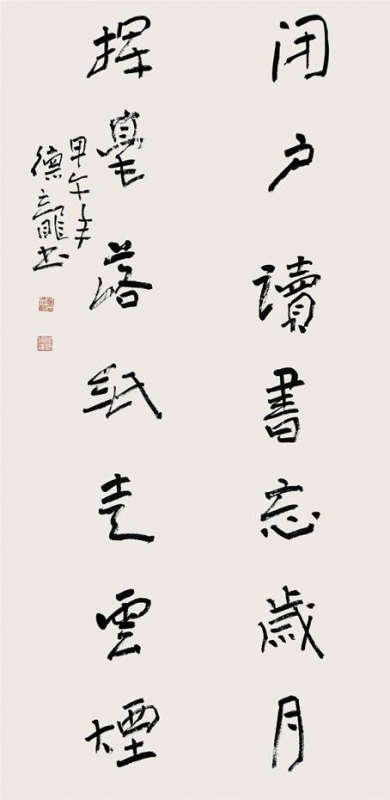 闭户讀書忘歲月
揮毫落紙走雲煙
甲午年
德龍书